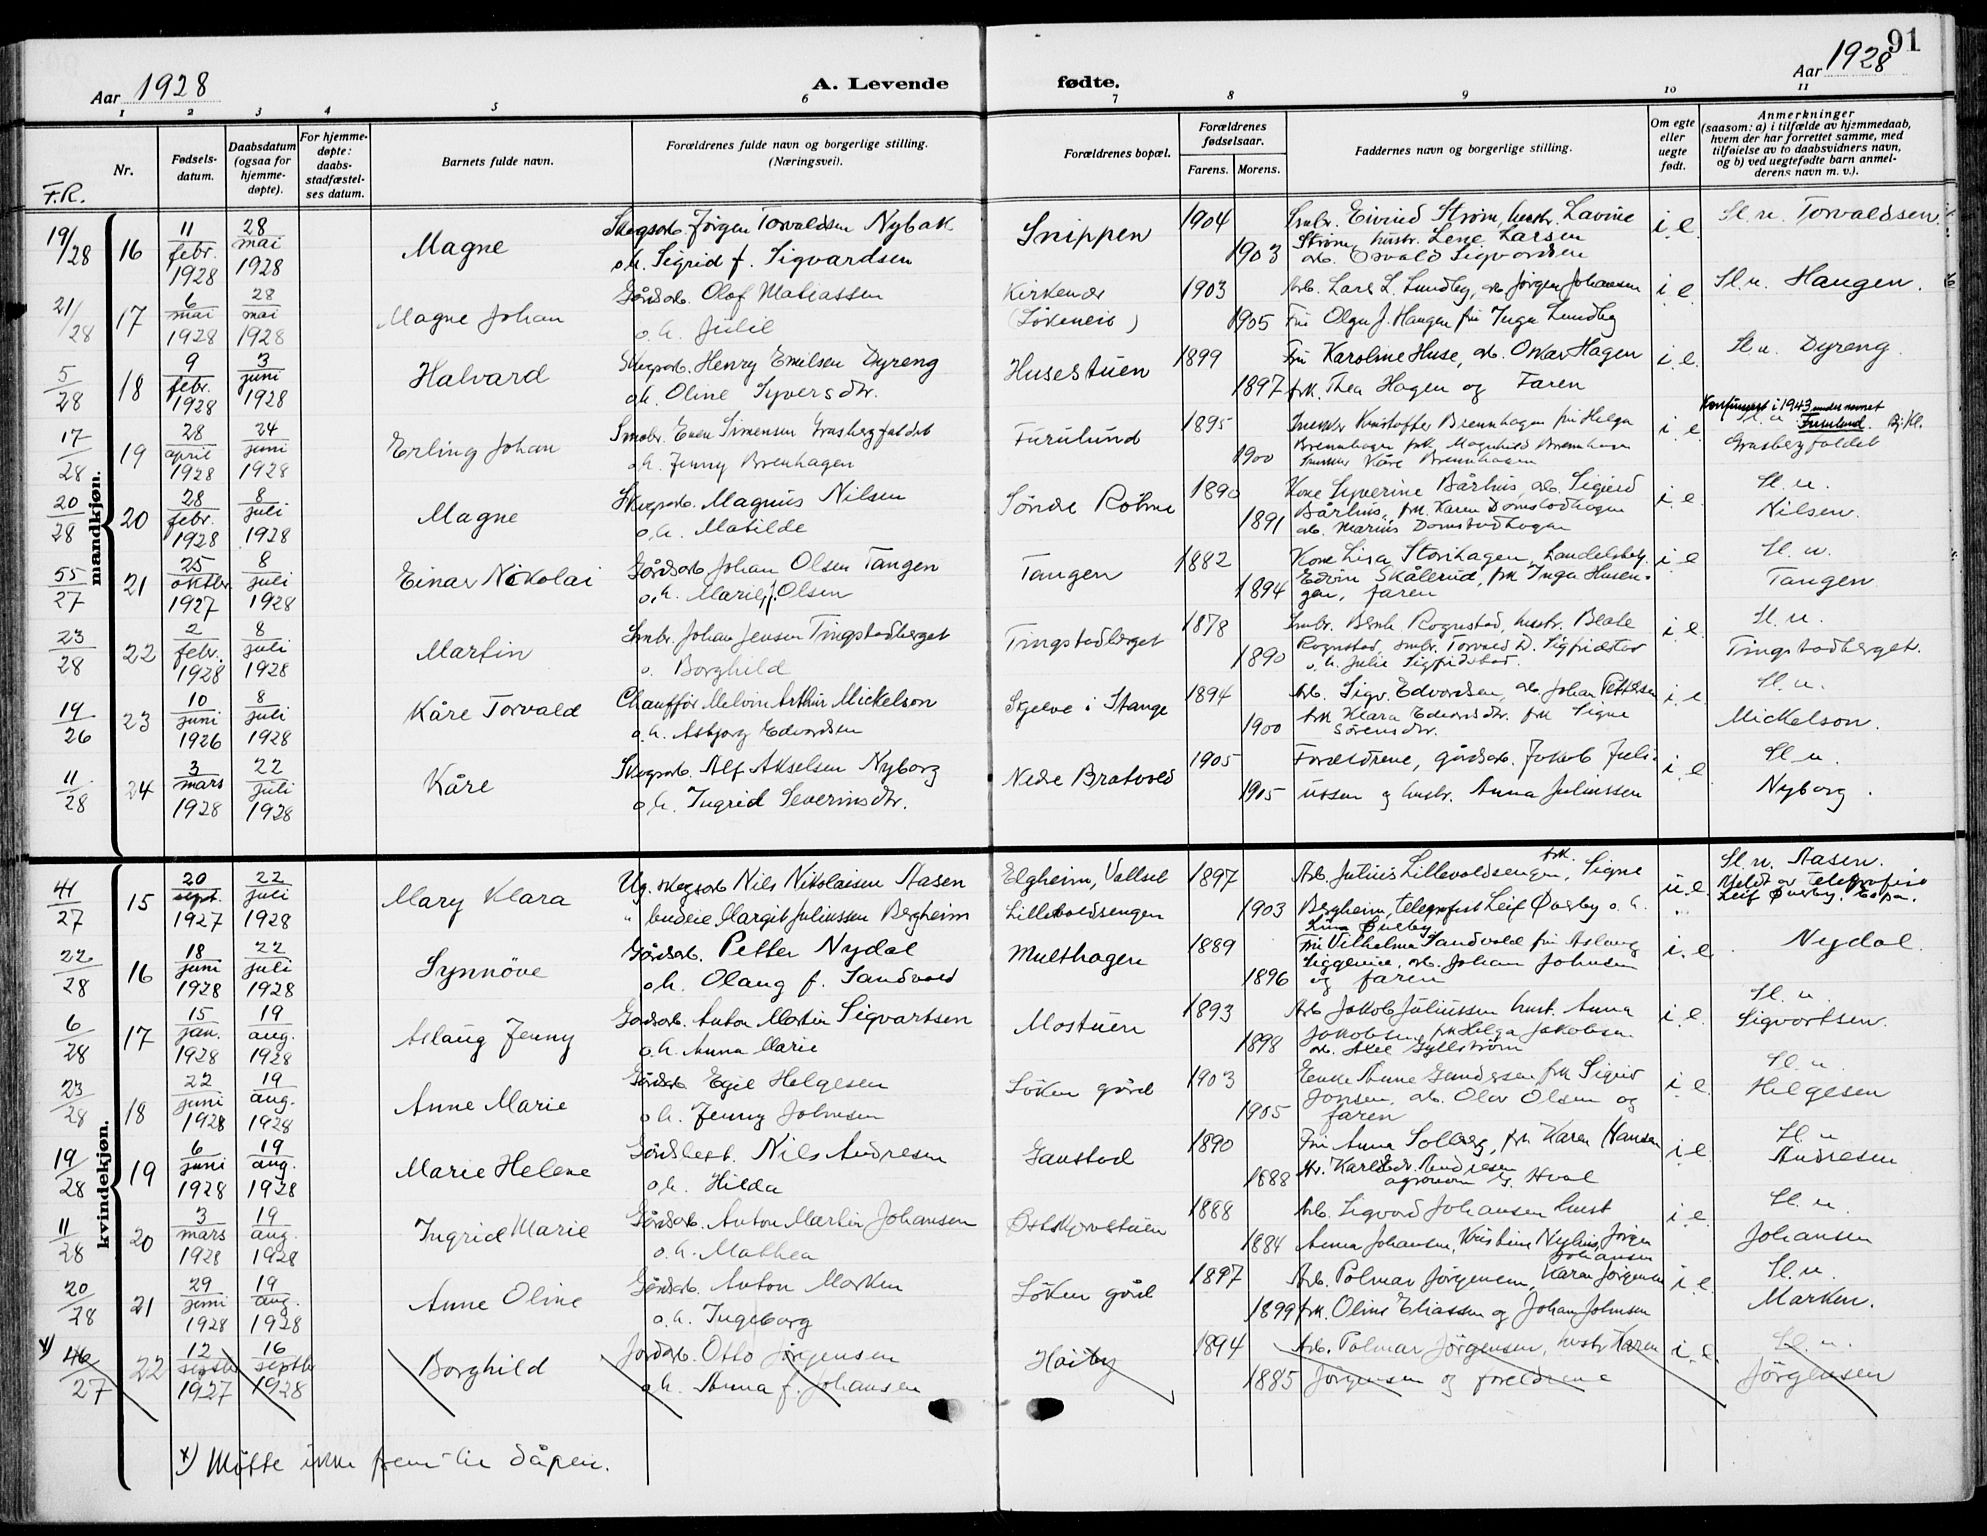 91
Aar 1928
A. Levende fødte.
Aar 1928
1 2 3 4 5 6 7 8 9 10 11
F.R.
Nr.
Fødsels-
datum.
Daabsdatum
(ogsaa for
hjemme-
døpte).
For hjemme-
døpte:
daabs-
stadfæstel-
ses datum.
Barnets fulde navn.
Forældrenes fulde navn og borgerlige stilling.
(Næringsvei).
Forældrenes bopæl.
Forældrenes
fødselsaar.
Farens. Morens.
Faddernes navn og borgerlige stilling.
Om egte
eller
uegte
født.
Anmerkninger
(saasom: a) i tilfælde av hjemmedaab,
hvem der har forrettet samme, med
tilføielse av to daabsvidners navn,
og b) ved uegtefødte barn anmel-
derens navn m. v.).
mandkjøn.
19/28 16 11 febr. 1928 28 mai 1928 Magne
Skogsarb. Jørgen Torvaldsen Nybak
o.h. Sigrid f. Sigvardsen
Snippen 1904 1903
Smbr. Eivind Strøm, hustr. Lavine
Strøm, hustr. Lene Larsen
arb. Osvald Sigvardsen
i.e. Sl. n. Torvaldsen
21/28 17 6 mai 1928 28 mai 1928 Magne Johan
Gårdsarb. Olaf Matiassen
o.h. Julie
Kirkener
1903 1905
Arb. Lars L. Lundby, arb. Jørgen Johansen
Fru Olga J. Haugen fru Inga Lundby
i.e. Sl. n. Haugen.
5/28 18 9 febr. 1928 3 juni 1928 Halvard
Skogsarb. Henry Emilsen Dyreng
o.h. Oline Syversdtr.
Husestuen 1899 1897
Fru Karoline Huse, arb. Oskar Hagen
frk. Thea Hagen og Faren
i.e. Sl. n. Dyreng
17/28 19 28 april 1928 24 juni 1928 Erling Johan
Smbr. Even Simensen Grasbergfaldet
o.h. Jenny Brenhagen
Furulund 1895 1900
Kristoffer Brennhagen fru Helga
Brennhagen frk. Magnhild Brennhagen
Kåre Brennhagen
i.e.
Konfirmert i 1943 under navnet
Sl. n. Furulund. Bj. Kl.
Grasbergfaldet
20/28 20 28 febr. 1928 8 juli 1928 Magne
Skogsarb. Magnus Nilsen
o.h. Matilde
Søndre Rotne 1890 1891
Kone Syverine Bårhus, arb. Sigurd
Bårhus, frk. Karen Domstadhagen
arb. Marius Domstadhagen
i.e. Sl. n.
Nilsen.
55/27 21 25 oktbr. 1927 8 juli 1928 Einar Nikolai
Gårdsarb. Johan Olsen Tangen
o.h. Marie f. Olsen
Tangen 1882 1894
Kone Lisa Storihagen, Landelsbest.
Edvin Skålerud, frk. Inga Husen-
gen, faren
i.e. Sl. n.
Tangen
23/28 22 2 febr. 1928 8 juli 1928 Martin
Smbr. Johan Jensen Tingstadberget
o. Borghild
Tingstadberget 1878 1890
Smbr. Bernh. Rognstad, hustr. Beate
Rognstad, smbr. Torvald D. Sigfridstad
o.h. Julie Sigfridstad.
i.e. Sl. n.
Tingstadberget.
19/26 23 10 juni 1926 8 juli 1928 Kåre Torvald
Chauffør Melvin Arthur Mickelson
o.h. Asbjørg Edvardsen
Skjelve i Stange 1894 1900
Arb. Sigv. Edvardsen, arb. Johan Pettersen
frk. Klara Edvardsdtr. frk. Signe
Sørensdtr.
i.e. Sl. n.
Mickelson.
11/28 24 3 mars 1928 22 juli 1928 Kåre
Skogsarb. Alf Akselsen Nyborg
o.h. Ingrid Severinsdtr.
Nedre Bratvold 1905 1905
Forældrene, gårdsarb. Jakob Juli-
ussen og hustr. Anna Juliussen
i.e. Sl. n.
Nyborg.
kvindekjøn.
41/27 15 20 sept. 1927 22 juli 1928 Mary Klara
Ug. skogsarb. Nils Nikolaisen Aasen
" budeie Margit Juliussen Bergheim
Elgheim, Vallset
Lillevoldsengen 1897 1903
Arb. Julius Lillevoldsengen, frk. Signe
Bergheim, telegrafist Leif Øverby o.h.
u.e.
Sl. n. Aasen.
Meldt av telegrafist
Leif Øverby, Espa.
22/28 16 18 juni 1928 22 juli 1928 Synnöve
Gårdsarb. Petter Nydal
o.h. Olaug f. Sandvold
Multhagen 1889 1896
Fru Vilhelma Sandvold fru Aslaug
arb. Johan Johnsen
og faren
i.e. Nydal.
6/28 17 15 jan. 1928 19 aug. 1928 Aslaug Jenny
Gårdsarb. Anton Martin Sigvartsen
o.h. Anna Marie
Mostuen 1893 1898
Arb. Jakob Juliussen hust. Anna
Jakobsen frk. Helga Jakobsen
arb. Axel Gyllstrøm
i.e. Sl. n.
Sigvartsen.
23/28 18 22 juni 1928 19 aug. 1928 Anne Marie
Gårdsarb. Egil Helgesen
o.h. Jenny Johnsen
Løken gård 1903 1905
Enke Anne Gundersen frk. Sigrid
Jonsen, arb. Olav Olsen og
faren
i.e. Sl. n.
Helgesen
19/28 19 6 juni 1928 19 aug. 1928 Marie Helene
Gårdbest. Nils Andresen
o.h. Hilda
Gaustad 1890 1888
Fru Anna Solberg, frk. Karen Hansen
Hr. Karl Edv. Andresen
agronom G. Hval
i.e. Sl. n.
Andresen
11/28 20 3 mars 1928 19 aug. 1928 Ingrid Marie
Gårdsarb. Anton Martin Johansen
o.h. Mathea
1888 1884
Arb. Sigvard Johansen hust
Anna Johansen, Kristine Nyhus, Jørgen
Johansen
i.e. Sl. n.
Johansen
20/28 21 29 juni 1928 19 aug. 1928 Anne Oline
Gårdsarb. Anton Marken
o.h. Ingeborg
Løken gård 1897 1899
Arb. Polmar Jørgensen, Karen Jørgensen
frk. Oline Eliassen og Johan Johnsen
i.e. Sl. n.
Marken.
x) 46/27 22 12 septbr 1927 16 septbr 1928 Borghild
Jordarb. Otto Jörgensen
o.h. Anna f. Johansen
Höiby 1894 1885
Arb. Polmar Jörgensen, hustr. Karen
Jörgensen og foreldrene
i.e. Sl. n.
Jörgensen
x) Møtte ikke frem til dåpen.